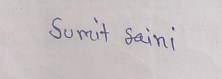 Sumit Saini